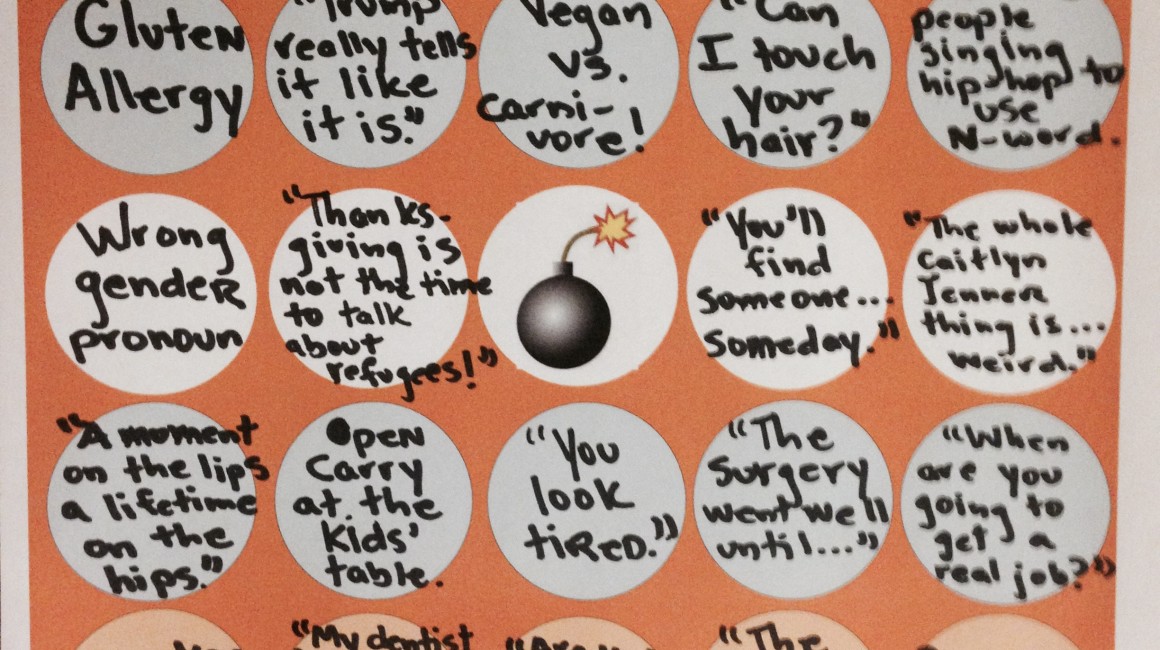 Gluten
Allergy
"Trump
really tells
it like
it is."
Vegan
vs.
carni-
vore!
"Can
I touch
your
hair?"
people
singing
hip hop to
use
N-word.
Wrong
gender
pronoun
"Thanks-
giving is
not the time
to talk
about
refugees!"
"You'll
find
someone...
Someday."
"The whole
Caitlyn
Jenner
thing is...
weird."
"A moment
on the lips
a lifetime
on the
hips."
Open
Carry
at the
Kids'
table.
"You
look
tired."
"The
Surgery
went well
until..."
"When
are you
going to
get a
real job?"
"My dentist
"The